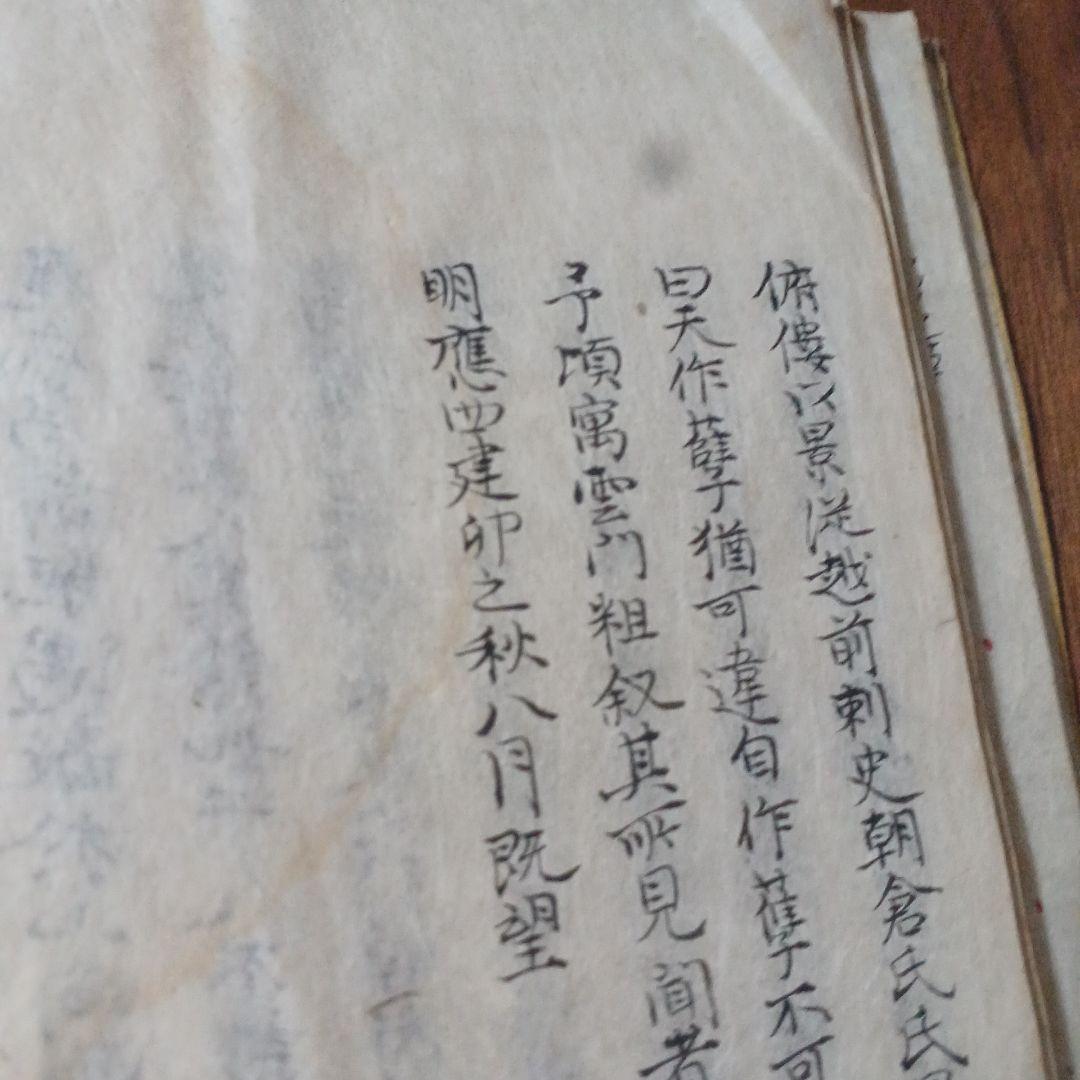 俯僂以景從越前刺史朝倉氏氏
曰天作孽猶可違自作孽不可
予頃寓雲門粗叙其所見聞者
明應四建卯之秋八月既望